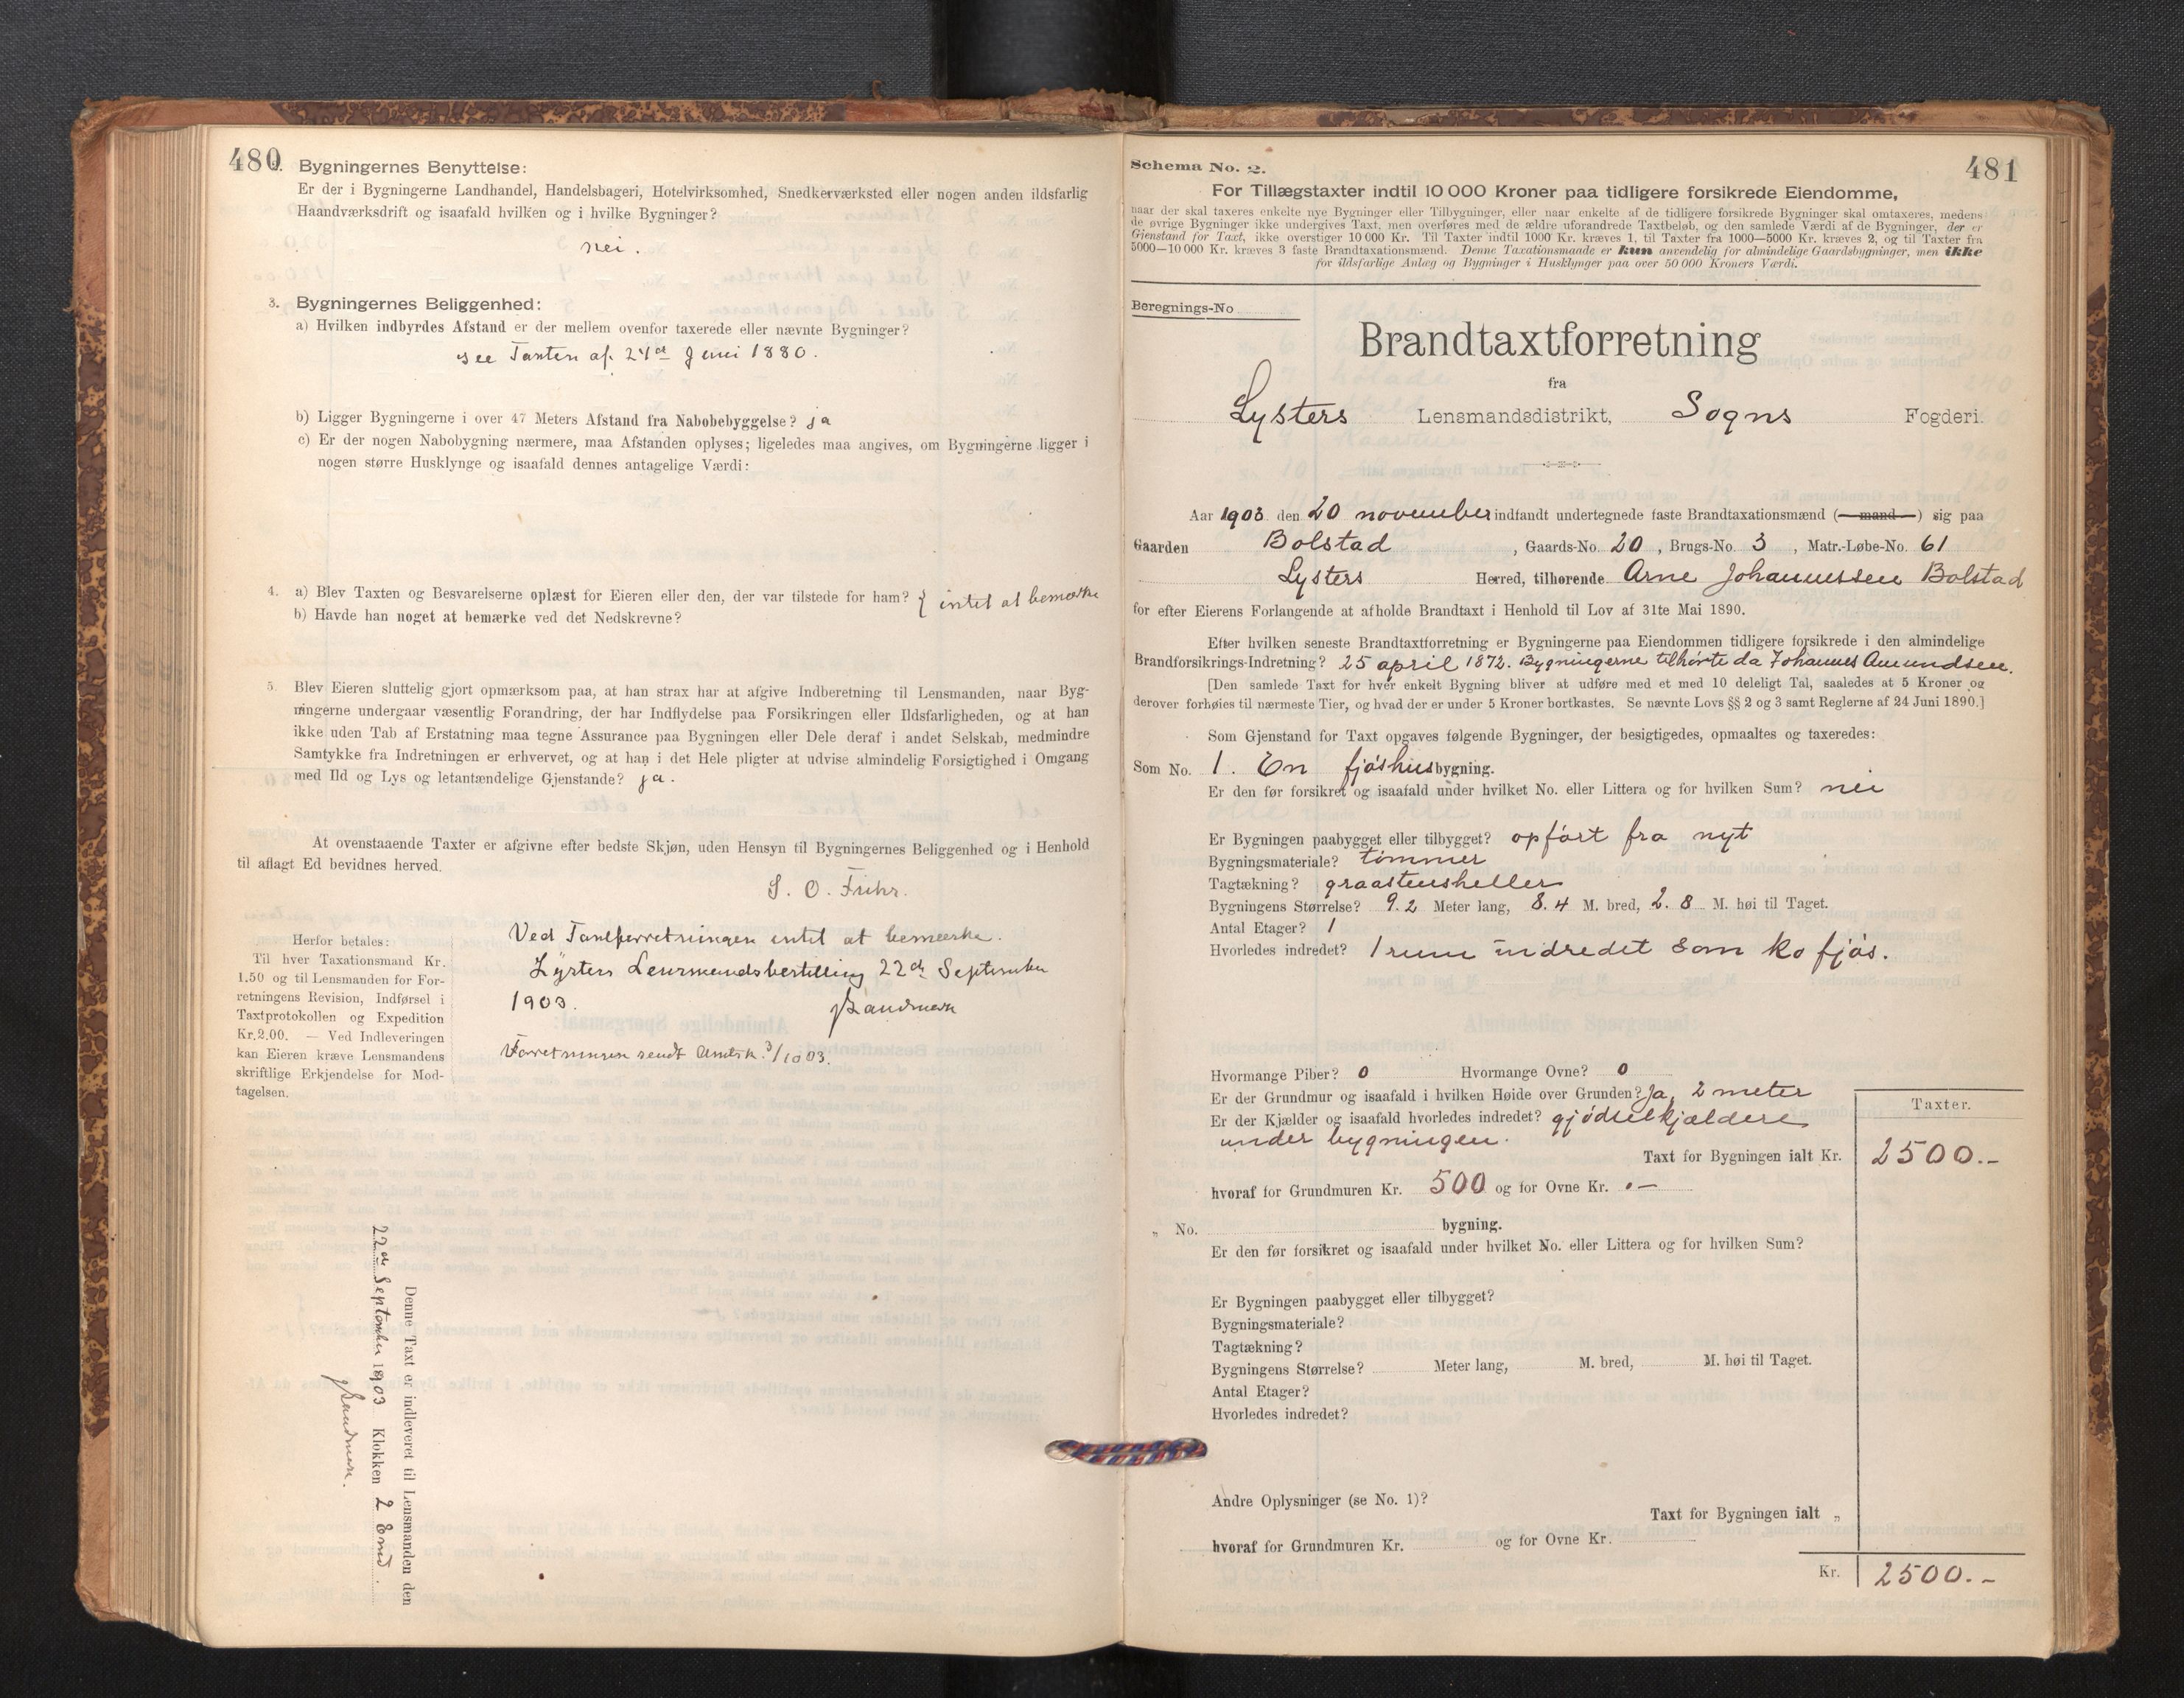 480
2. Bygningernes Benyttelse:
Er der i Bygningerne Landhandel, Handelsbageri, Hotelvirksomhed, Snedkerværksted eller nogen anden ildsfarlig
Haandværksdrift og isaafald hvilken og i hvilke Bygninger?
nei.
3. Bygningernes Beliggenhed:
a) Hvilken indbyrdes Afstand er der mellem ovenfor taxerede eller nævnte Bygninger?
see Taxten af 24de Juni 1880.
b) Ligger Bygningerne i over 47 Meters Afstand fra Nabobebyggelse? ja
c) Er der nogen Nabobygning nærmere, maa Afstanden oplyses; ligeledes maa angives, om Bygningerne ligger i
nogen større Husklynge og isaafald dennes antagelige Værdi:
4. a) Blev Taxten og Besvarelserne oplæst for Eieren eller den, der var tilstede for ham? { intet at bemærke
b) Havde han noget at bemærke ved det Nedskrevne?
5. Blev Eieren sluttelig gjort opmærksom paa, at han strax har at afgive Indberetning til Lensmanden, naar Byg-
ningerne undergaar væsentlig Forandring, der har Indflydelse paa Forsikringen eller Ildsfarligheden, og at han
ikke uden Tab af Erstatning maa tegne Assurance paa Bygningen eller Dele deraf i andet Selskab, medmindre
Samtykke fra Indretningen er erhvervet, og at han i det Hele pligter at udvise almindelig Forsigtighed i Omgang
med Ild og Lys og letantændelige Gjenstande? ja.
At ovenstaaende Taxter er afgivne efter bedste Skjøn, uden Hensyn til Bygningernes Beliggenhed og i Henhold
til aflagt Ed bevidnes herved.
S. O. Fuhr.
Ved Taxtforretningen intet at bemærke.
Lysters Lensmandsbestilling 22de September
1903. Sandmern
Forretningen sendt Amtsk. 3/10 03.
Herfor betales:
Til hver Taxationsmand Kr.
1.50 og til Lensmanden for For-
retningens Revision, Indførsel i
Taxtprotokollen og Expedition
Kr.2.00. — Ved Indleveringen
kan Eieren kræve Lensmandens
skriftlige Erkjendelse for Mod-
tagelsen.
Denne Taxt er indleveret til Lensmanden den
22de September 1903 Klokken 2 Emd.
481
Schema No. 2.
For Tillægstaxter indtil 10 000 Kroner paa tidligere forsikrede Eiendomme,
naar der skal taxeres enkelte nye Bygninger eller Tilbygninger, eller naar enkelte af de tidligere forsikrede Bygninger skal omtaxeres, medens
de øvrige Bygninger ikke undergives Taxt, men overføres med de ældre uforandrede Taxtbeløb, og den samlede Værdi af de Bygninger, der er
Gjenstand for Taxt, ikke overstiger 10 000 Kr. Til Taxter indtil 1000 Kr. kræves 1, til Taxter fra 1000—5000 Kr. kræves 2, og til Taxter fra
5000—10 000 Kr. kræves 3 faste Brandtaxationsmænd. Denne Taxationsmaade er kun anvendelig for almindelige Gaardsbygninger, men ikke
for ildsfarlige Anlæg og Bygninger i Husklynger paa over 50 000 Kroners Værdi.
Beregnings-No
Brandtaxtforretning
fra
Lysters Lensmandsdistrikt, Sogns Fogderi.
Aar 1903 den 20 november indfandt undertegnede faste Brandtaxationsmænd (mand) sig paa
Gaarden Bolstad, Gaards-No. 20, Brugs-No. 3, Matr.-Løbe-No. 61
Lysters Herred, tilhørende Arne Johannessen Bolstad
for efter Eierens Forlangende at afholde Brandtaxt i Henhold til Lov af 31te Mai 1890.
Efter hvilken seneste Brandtaxtforretning er Bygningerne paa Eiendommen tidligere forsikrede i den almindelige
Brandforsikrings-Indretning? 25 april 1872. Bygningerne tilhørte da Johannes Amundsen.
[Den samlede Taxt for hver enkelt Bygning bliver at udføre med et med 10 deleligt Tal, saaledes at 5 Kroner og
derover forhøies til nærmeste Tier, og hvad der er under 5 Kroner bortkastes. Se nævnte Lovs §§ 2 og 3 samt Reglerne af 24 Juni 1890.]
Som Gjenstand for Taxt opgaves følgende Bygninger, der besigtigedes, opmaaltes og taxeredes:
Som No. 1. En fjøshusbygning.
Er den før forsikret og isaafald under hvilket No. eller Littera og for hvilken Sum? nei
Er Bygningen paabygget eller tilbygget? opført fra nyt
Bygningsmateriale? tømmer
Tagtækning? graastensheller
Bygningens Størrelse? 9.2 Meter lang, 8.4 M. bred, 2.8 M. høi til Taget.
Antal Etager? 1
Hvorledes indredet? 1 rum indredet som ko fjøs.
Hvormange Piber? 0 Hvormange Ovne? 0
Er der Grundmur og isaafald i hvilken Høide over Grunden? Ja, 2 meter
Er der Kjælder og isaafald hvorledes indredet? gjødselkjældere
under bygningen.
Taxter.
Taxt for Bygningen ialt Kr. 2500.-
hvoraf for Grundmuren Kr. 500 og for Ovne Kr. .—
„ No. bygning.
Er den før forsikret og isaafald under hvilket No. eller Littera og for hvilken Sum?
Er Bygningen paabygget eller tilbygget?
Bygningsmateriale?
Tagtækning?
Bygningens Størrelse? Meter lang, M. bred, M. høi til Taget.
Antal Etager?
Hvorledes indredet?
Andre Oplysninger (se No. 1)?
Taxt for Bygningen ialt „
hvoraf for Grundmuren Kr. og for Ovne Kr.
Kr. 2500.-